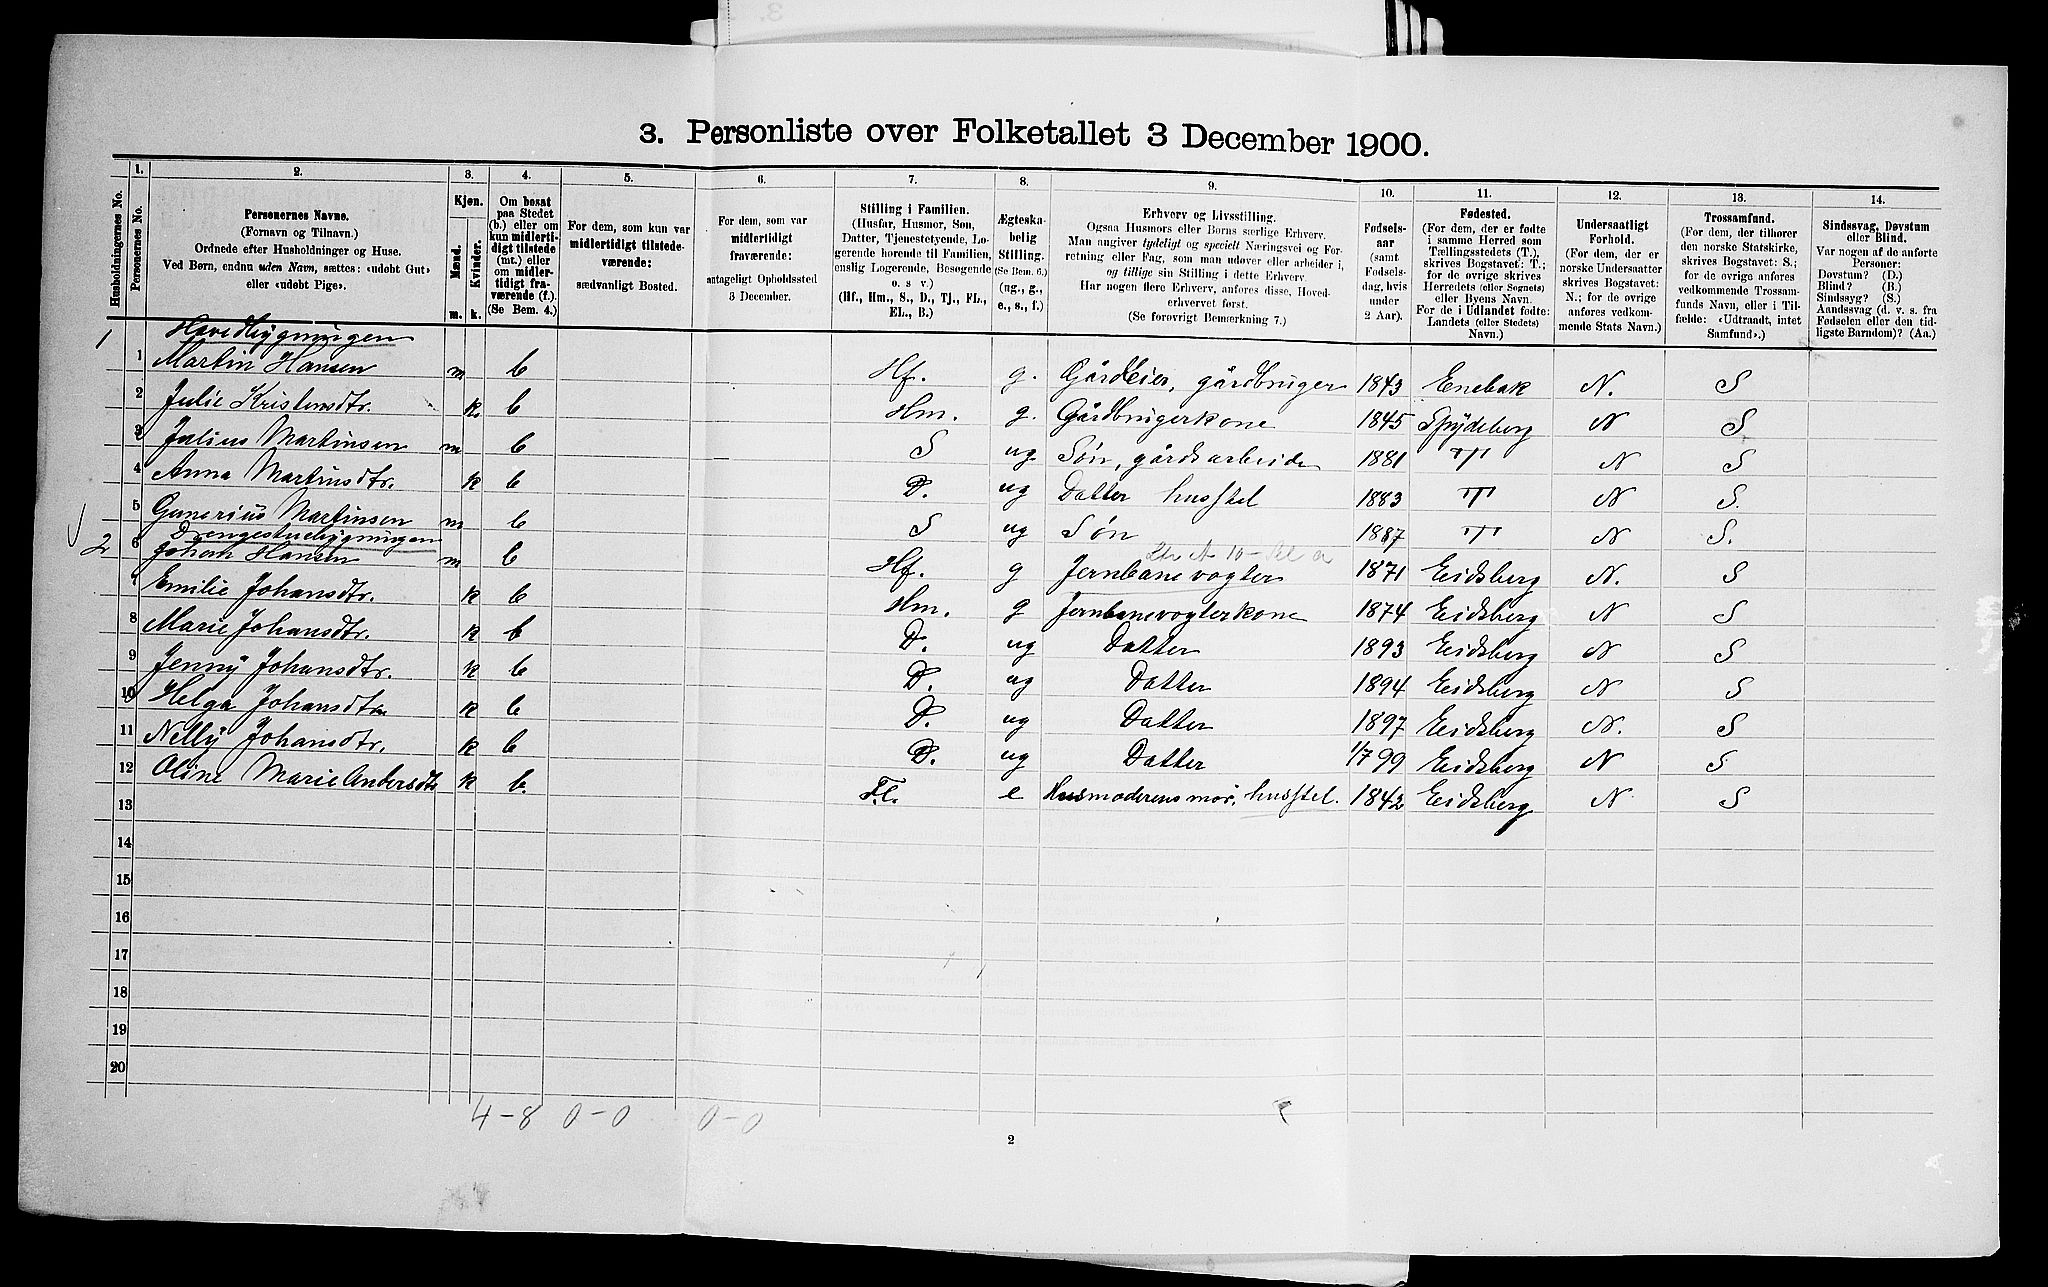 3. Personliste over Folketallet 3 December 1900.
Husholdningernes No.
1. Personernes No.
2. Personernes Navne. (Fornavn og Tilnavn.) Ordnede efter Husholdninger og Huse. Ved Børn, endnu uden Navn, sættes: «udøbt Gut» eller «udøbt Pige».
3. Kjøn. Mænd. Kvinder. m. k.
4. Om bosat paa Stedet (b.) eller om kun midlertidigt tilstede (mt.) eller om midlertidigt fraværende (f.). (Se Bem. 4.)
5. For dem, som kun var midlertidigt tilstedeværende: sædvanligt Bosted.
6. For dem, som var midlertidigt fraværende: antageligt Opholdssted 3 December.
7. Stilling i Familien. (Husfar, Husmor, Søn, Datter, Tjenestetyende, Logerende hørende til Familien, enslig Logerende, Besøgende o. s v.) (Hf., Hm., S., D., Tj., FL., EL., B.)
8. Ægteskabelig Stilling. (Se Bem. 6.) (ug., g., e., s., f.)
9. Erhverv og Livsstilling. Ogsaa Husmors eller Børns særlige Erhverv. Man angiver tydeligt og specielt Næringsvei og Forretning eller Fag, som man udøver eller arbeider i, og tillige sin Stilling i dette Erhverv. Har nogen flere Erhverv, anføres disse, Hovederhvervet først. (Se forøvrigt Bemærkning 7.)
10. Fødselsaar (samt Fødselsdag, hvis under 2 Aar).
11. Fødested. (For dem, der er fødte i samme Herred som Tællingsstedets (T.), skrives Bogstavet: T.; for de øvrige skrives Herredets (eller Sognets) eller Byens Navn. For de i Udlandet fødte: Landets (eller Stedets) Navn.)
12. Undersaatligt Forhold. (For dem, der er norske Undersaatter skrives Bogstavet: N.; for de øvrige anføres vedkommende Stats Navn.)
13. Trossamfund. (For dem, der tilhører den norske Statskirke, skrives Bogstavet: S.; for de øvrige anføres vedkommende Trossamfunds Navn, eller i Tilfælde: «Udtraadt, intet Samfund».)
14. Sindssvag, Døvstum eller Blind. Var nogen af de anførte Personer: Døvstum? (D.) Blind? (B.) Sindssyg? (S.) Aandssvag (d. v. s. fra Fødselen eller den tidligste Barndom)? (Aa.)
1 Hovedbygningen
1 Martin Hansen m b Hf. g. Gårdeier, gårdbruger 1843 Enebak N. S
2 Julie Kristensdtr. k. b Hm. g. Gårdbrugerkone 1845 Spydeberg N S
3 Julius Martinsen m b S ug Søn, gårdsarbeide 1881 T N S
4 Anna Martinsdtr. k b D. ug Datter husstel 1883 T N S.
5 Gunerius Martinsen m b S ug Søn 1887 T N S.
Drengestuebygningen
2 6 Johan Hansen m b Hf. g Jernbanevogter 1871 Eidsberg N. S
7 Emilie Johansdtr. k b Hm. g Jernbanevogterkone 1874 Eidsberg N S
8 Marie Johansdtr. k b D. ug Datter 1893 Eidsberg N S
9 Jenny Johansdtr. k b D. ug Datter 1894 Eidsberg N S
10 Helga Johansdtr k b D. ug Datter 1897 Eidsberg N. S
11 Nelly Johansdtr. k b D. ug Datter 1/7 99 Eidsberg N S
12 Oline Marie Andersdtr k b. F.l. e Husmoderens mor, husstel. 1842 Eidsberg N S
13
14
15
16
17
18
19
20
4-8 0-0 0-0
2